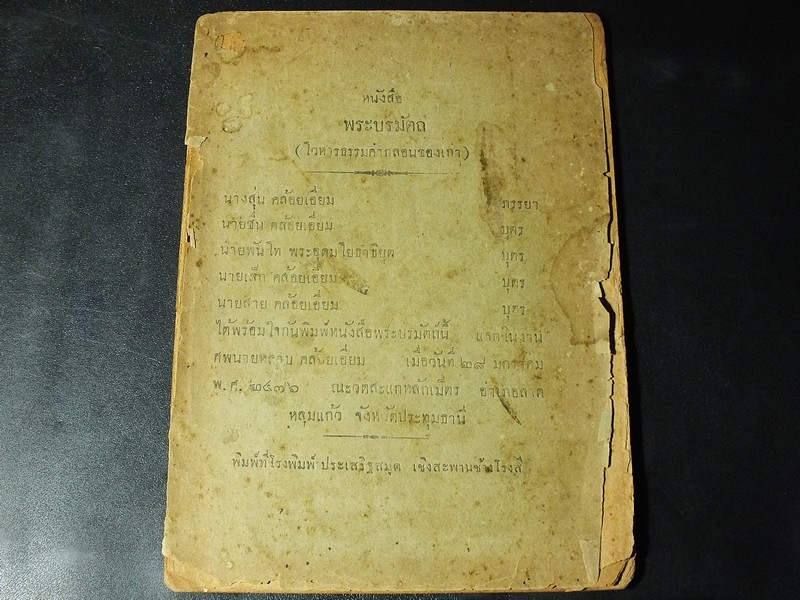 หนังสือ
พระบรมัตถ
(ไวหารธรรมคำกลอนของเก่า)
นางสุ่น คล้อยเอี่ยม ภรรยา
นายชื่น คล้อยเอี่ยม บุตร
นายพันโท พระอุดมโยธาธิยุต บุตร
นายเล็ก คล้อยเอี่ยม บุตร
นายสาย คล้อยเอี่ยม บุตร
ได้พร้อมใจกันพิมพ์หนังสือพระบรมัตถ์นี้ แจกในงาน
ศพนายหลาบ คล้อยเอี่ยม เมื่อวันที่ ๒๘ มกราคม
พ.ศ. ๒๔๗๖ ณะวัดสะแกหลักเมตร อำเภอลาด
หลุมแก้ว จังหวัดประทุมธานี
พิมพ์ที่โรงพิมพ์ ประเสริฐสมุด เชิงสะพานช้างโรงสี